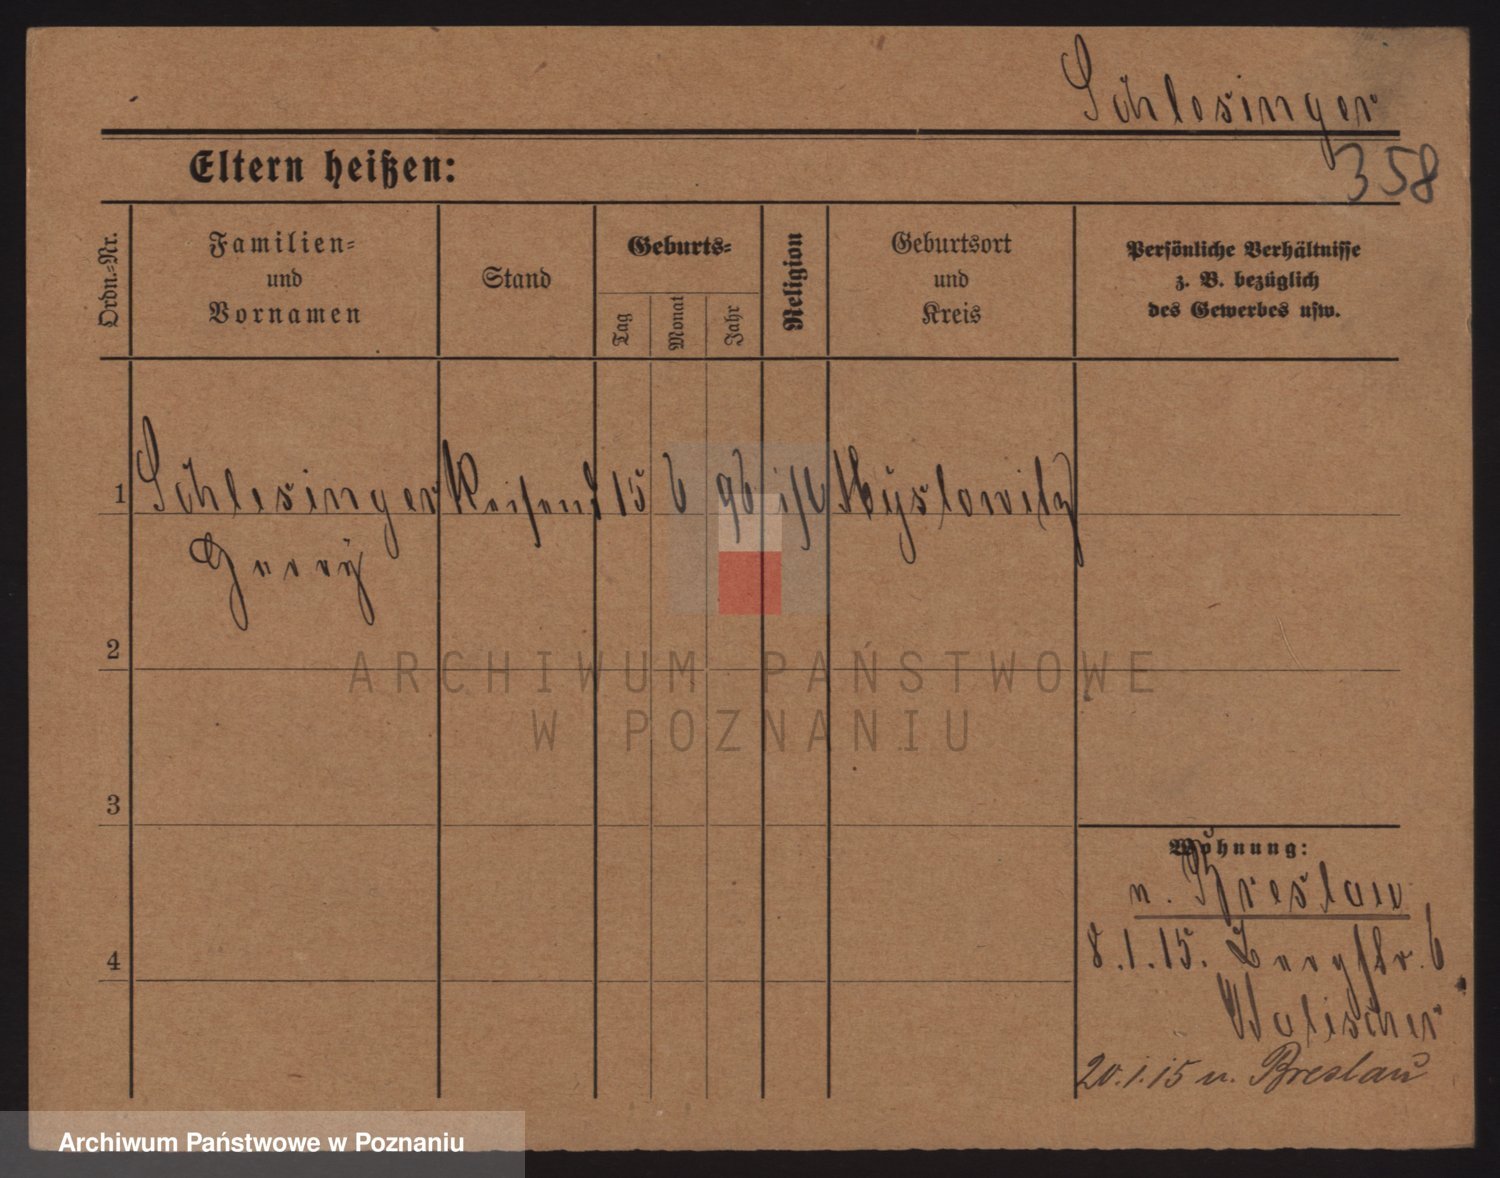 Schlesinger
358
Eltern heißen:
Ordn.-Nr.
Familien-
und
Vornamen
Stand
Geburts-
Tag
Monat
Jahr
Religion
Geburtsort
und
Kreis
Persönliche Verhältnisse
z. B. bezüglich
des Gewerbes usw.
1 Schlesinger Reisend 15 6 96 isr Myslowitz
Georg
2
ARCHIWUM PAŃSTWOWE
W POZNANIU
3
Wohnung:
n. Breslau
8.1.15. Bergstr. 6
4
Walischer
20.1.15 n. Breslau
Archiwum Państwowe w Poznaniu